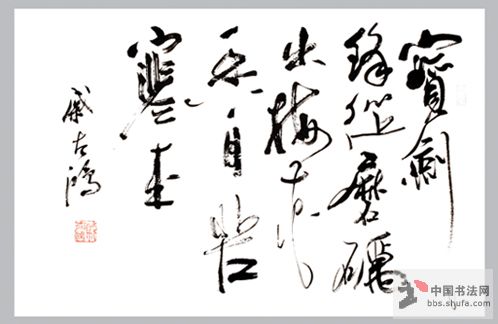 寶劍
鋒從磨礪
出梅花
香自苦
寒来
中国书法网
bbs.shufa.com